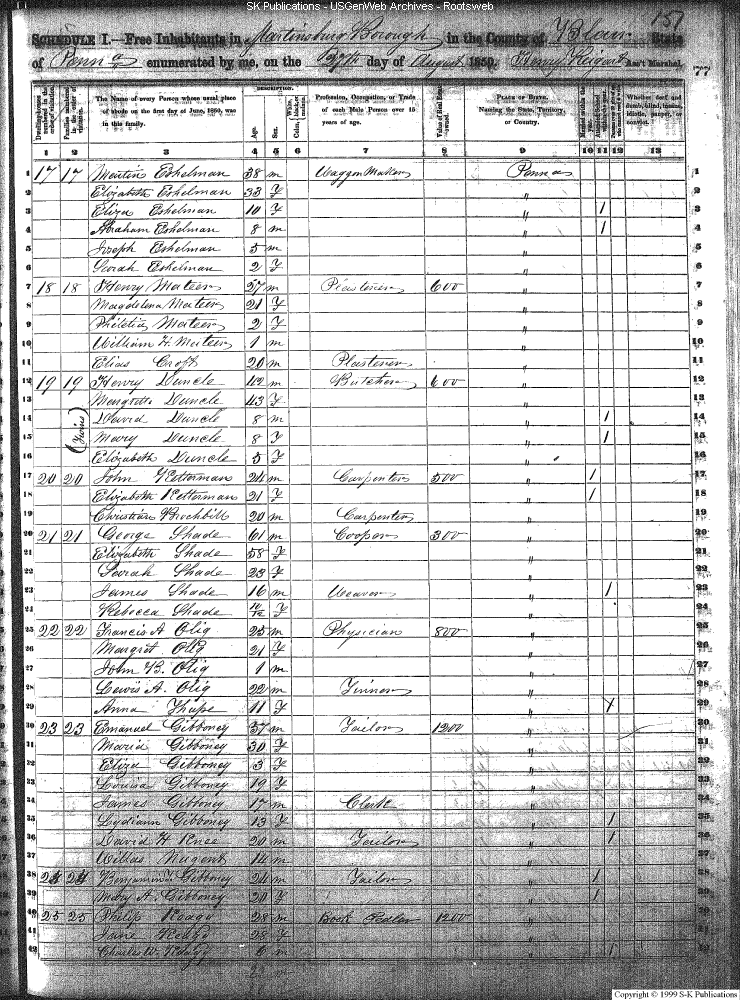 SK Publications - USGenWeb Archives - Rootsweb
151
SCHEDULE I.—Free Inhabitants in Martinsburg Borough in the County of Blair State
of Penna enumerated by me, on the 27th day of August 1850. Henry Ass't Marshal. 77
Dwelling-houses numbered in the order of visitation.
Families numbered in the order of visitation.
The Name of every Person whose usual place of abode on the first day of June, 1850, was in this family.
DESCRIPTION.
Age.
Sex.
Profession, Occupation, or Trade of each Male Person over 15 years of age.
Value of Real Estate owned.
PLACE OF BIRTH. Naming the State, Territory, or Country.
Married within the year.
Whether deaf and dumb, blind, insane, idiotic, pauper, or convict.
1 2 3 4 5 6 7 8 9 10 11 12 13
1 17 17 Martin Eshelman 38 m Waggon Maker Penna 1
2 Elizabeth Eshelman 33 F " 2
3 Eliza Eshelman 10 F " 1 3
4 Abraham Eshelman 8 m " 1 4
5 Joseph Eshelman 5 m " 5
6 Sarah Eshelman 2 F " 6
7 18 18 Henry Mateer 57 m Plasterer 600 " 7
8 Magdelena Mateer 21 F " 8
9 Philetia Mateer 2 F " 9
10 William H. Mateer 1 m " 10
11 Elias Croft 20 m Plasterer " 11
12 19 19 Henry Duncle 42 m Butcher 600 " 12
13 Margrett Duncle 43 F " 13
14 (Twins) David Duncle 8 m " 1 14
15 Mary Duncle 8 F " 1 15
16 Elizabeth Duncle 5 F " 16
17 20 20 John Ketterman 24 m Carpenter 500 " 1 17
18 Elizabeth Ketterman 21 F " 1 18
19 Christian Brechbill 20 m Carpenter " 19
20 21 21 George Shade 61 m Cooper 300 " 20
21 Elizabeth Shade 58 F " 21
22 Sarah Shade 23 F " 22
23 James Shade 16 m Weaver " 1 23
24 Rebecca Shade 4/12 F " 24
25 22 22 Francis A Olig 25 m Physician 800 " 25
26 Margret Olig 21 F " 26
27 John B. Olig 1 m " 27
28 Lewis A. Olig 22 m Tinner " 28
29 Anna 11 F " 29
30 23 23 Emanuel Gibboney 37 m Tailor 1200 " 30
31 Maria Gibboney 30 F " 31
32 Eliza Gibboney 3 F " 32
33 Louisa Gibboney 19 F " 33
34 James Gibboney 17 m Clerk " 34
35 Lydiann Gibboney 13 F " 1 35
36 David H 20 m Tailor " 1 36
37 Nugent 14 m " 37
38 24 24 Benjamin Gibboney 24 m Tailor " 1 38
39 Mary A. Gibboney 20 F " 1 39
40 25 25 Philip 28 m Book 1200 " 40
41 Jane 28 F " 41
42 Charles W. 6 m " 1 42
Copyright © 1999 S-K Publications